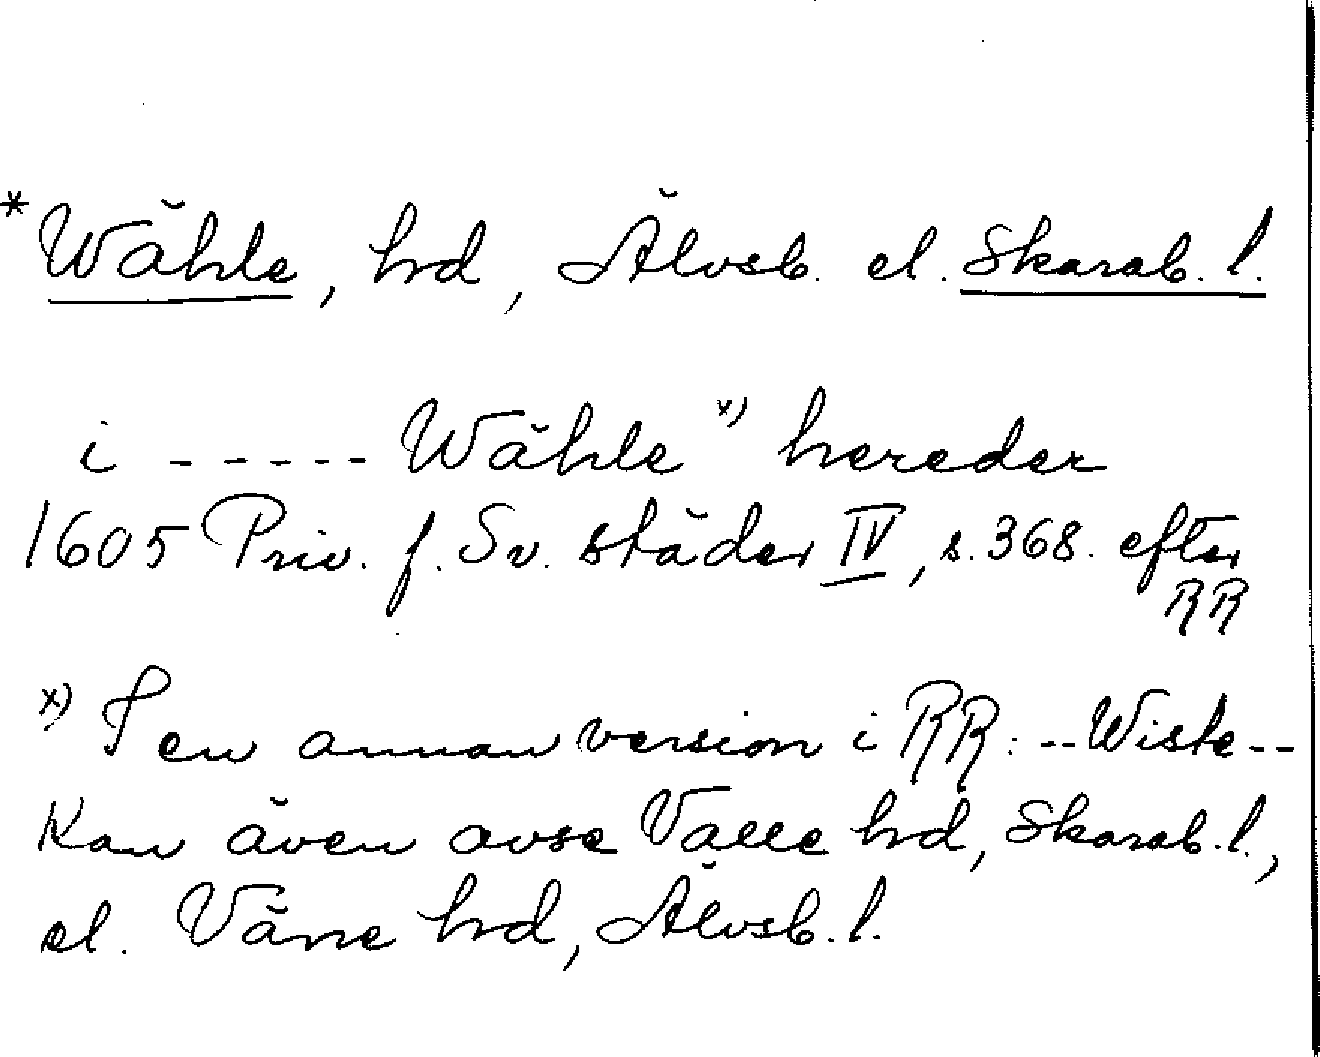 * Wähle, hd, Älvsb. el. Skarab. l.
i ----- Wähle x) hereder
1605 Priv. f. Sv. städer IV, s. 368. efter
RR
x) I en annan version i RR: --Wiste--
Kan även avse Valle hd, Skarab. l.,
el. Väne hd, Älvsb. l.